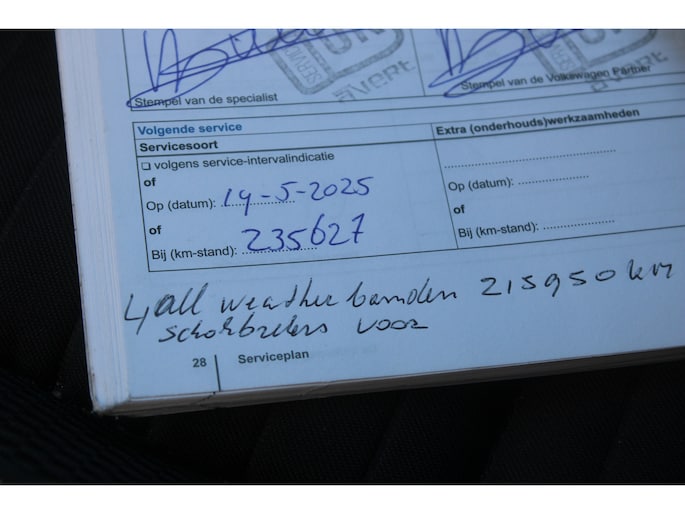 SERVICE
Evert
Evert
Stempel van de specialist
Stempel van de Volkswagen Partner
Volgende service
Servicesoort
Extra (onderhouds)werkzaamheden
❑ volgens service-intervalindicatie
of
Op (datum): 14-5-2025
of
Bij (km-stand): 235627
Op (datum):
of
Bij (km-stand):
4 all weather banden 215950 km
schokbrekers voor
28 Serviceplan